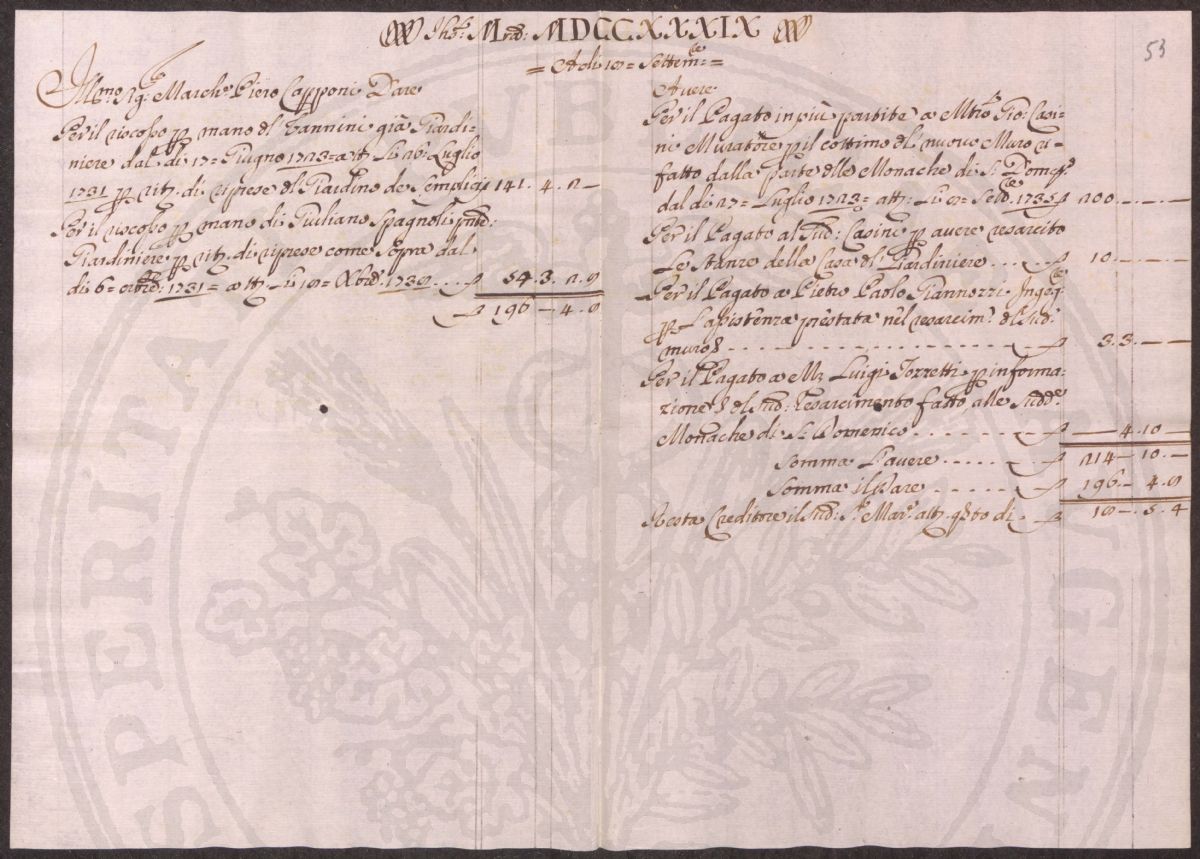 Jhs: Mrã: MDCCXXXIX
53
= Adi 18 = Settem:re =
Ill:mo Sig: March:e Piero Capponi Dare
Per il riscosso p mano dl Vannini già Giardi=
niere dal di 17= Giugno 1723= a tt: Li 26: Luglio
1731 p rit: di riprese dl Giardino de Semplici 141. 4. 2 —
Per il riscosso p mano di Giuliano Spagnoli pnte:
Giardiniere p rit: di riprese come Sopra dal
di 6= 8bre: 1731= a tt: Li 18= Xbre: 1738 . . . 54. 3. 2. 8
196 — 4. 8
Avere
Per il Pagato in più partite a Mtro Gio: Casi=
ni Muratore p il cottimo dl nuovo Muro ri=
fatto dalla parte dlle Monache di S: Domco:
dal di 27= Luglio 1723= a tt: Li 8= 1735 200 . — . — . —
Per il Pagato al Sud: Casini p avere resarcito
Le Stanze della Casa dl Giardiniere . . . . 10 — . — . —
Per il Pagato a Pietro Paolo Giannozzi Ingeg:re
p L'assistenza prestata nel resarcim:o dl Sud:
muro 3. 3. — —
Per il Pagato a Mr Luigi Torretti p informa=
zione dl Sud: resarcimento fatto alle Sudde:
Monache di S: Domenico . . . . . . — 4. 10 —
Somma L'avere . . . . . 214 — 10. —
Somma il Dare . . . . . 196. — 4. 8
Resta Creditore il Sud: Sr: Mar:e a tt: qsto di 18 — . 5. 4